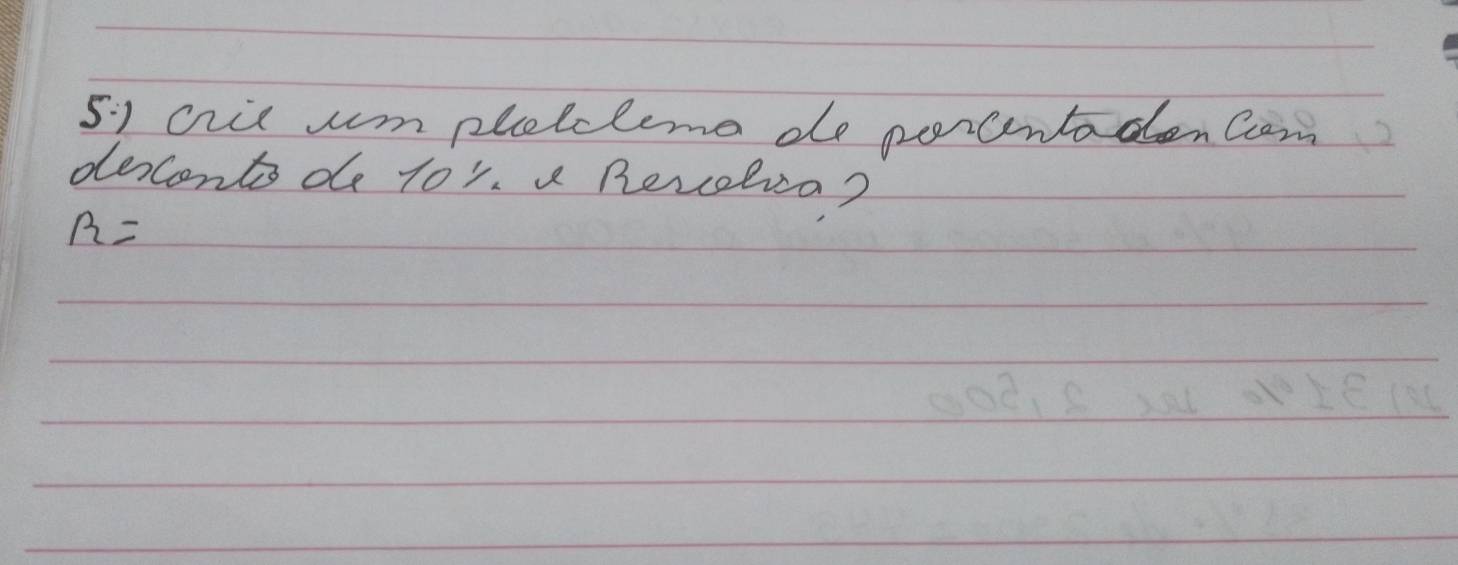 5.) Crie um ploblema de porcenta com
desconto de 10%. e Resolva?
R=
31% 2,500